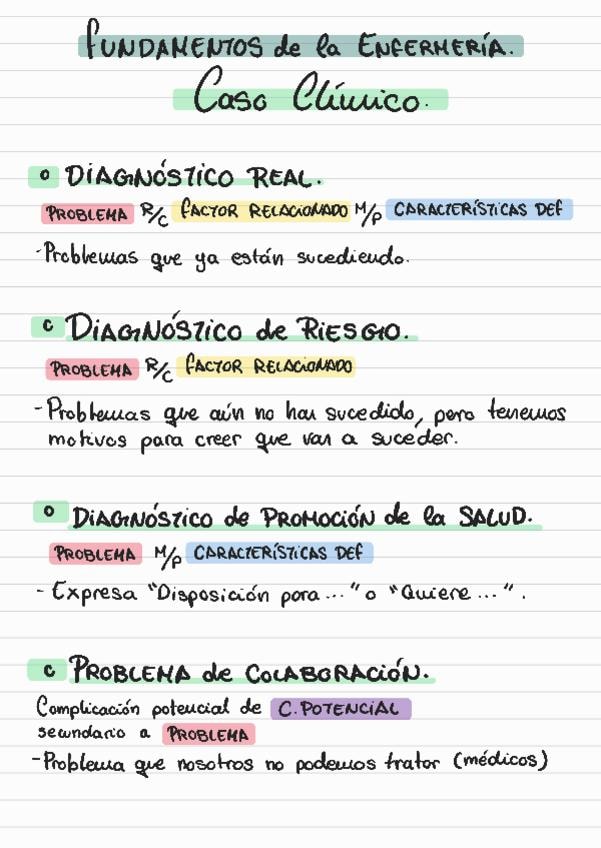 FUNDAMENTOS de la ENFERMERÍA.
Caso Clínico.
o DIAGNÓSTICO REAL.
PROBLEMA R/C FACTOR RELACIONADO M/P CARACTERÍSTICAS DEF
-Problemas que ya están sucediendo.
c DIAGNÓSTICO de RIESGO.
PROBLEMA R/C FACTOR RELACIONADO
-Problemas que aún no han sucedido, pero tenemos
motivos para creer que van a suceder.
o DIAGNÓSTICO de PROMOCIÓN de la SALUD.
PROBLEMA M/P CARACTERÍSTICAS DEF
- Expresa "Disposición para..." o "Quiere...".
c PROBLEMA de COLABORACIÓN.
Complicación potencial de C. POTENCIAL
secundario a PROBLEMA
-Problema que nosotros no podemos tratar (médicos)